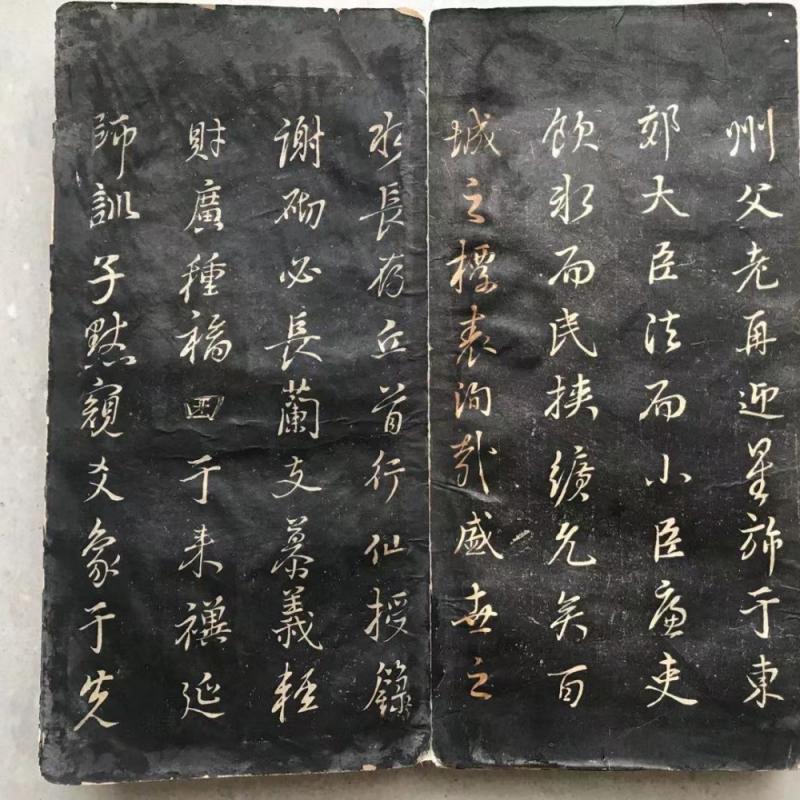 州父老再迎星旆于東
郊大臣法而小臣廉吏
飲冰而民挾纊允矣百
城之標表洵哉盛世之
水長存丘首行仙授籙
謝砌必長蘭支慕義輕
財廣種福田于来禩延
師訓子默窺爻象于先